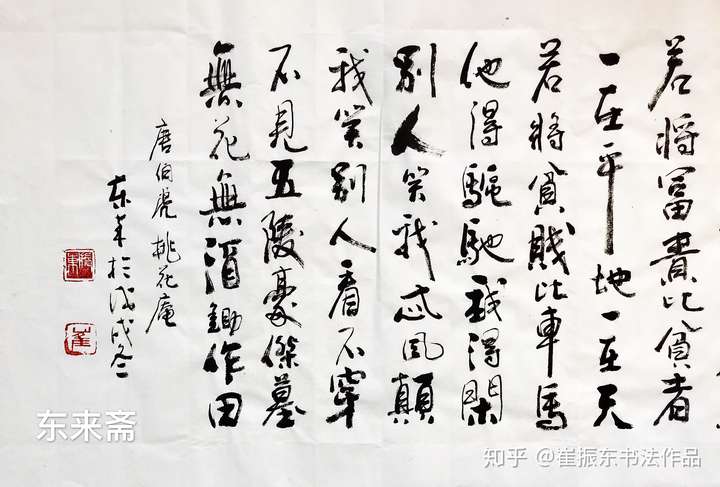 若將富貴比貧者
一在平地一在天
若將貧賤比車馬
他得驅馳我得閑
別人笑我忒風顛
我笑別人看不穿
不見五陵豪傑墓
無花無酒鋤作田
唐伯虎桃花庵
东来於戊戌冬
崔
东来斋
知乎 @崔振东书法作品